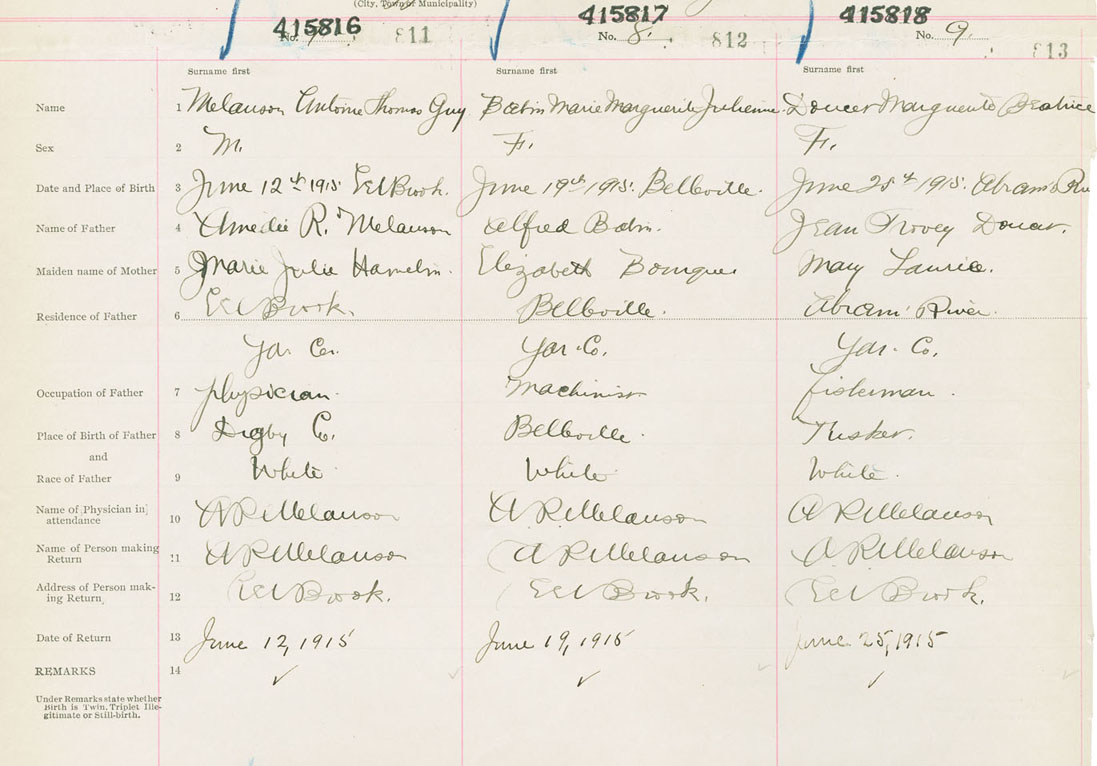 (City, Town or Municipality)
415816 415817 415818
No. 7 811 No. 8. 812 No. 9. 813
Surname first Surname first Surname first
Name 1 Melanson Antoine Thomas Guy Babin Marie Marguerite Julienne. Doucet Marguerite Beatrice
Sex 2 M. F. F.
Date and Place of Birth 3 June 12th 1915 Eel Brook. June 19th 1915. Belleville. June 25th 1915. Abram's
Name of Father 4 Amedie R. Melanson Alfred Babin. Jean Doucet.
Maiden name of Mother 5 Marie Julie Hamelin. Elizabeth Bourque. Mary Laurice.
Residence of Father 6 Eel Brook. Belleville. Abram' River.
Yar Co. Yar. Co. Yar. Co.
Occupation of Father 7 physician. Machinist fisherman.
Place of Birth of Father 8 Digby Co. Belleville. Tusket.
and
Race of Father 9 White White White.
Name of Physician in attendance 10 A R Melanson A R Melanson A R Melanson
Name of Person making Return 11 A R Melanson A R Melanson A R Melanson
Address of Person making Return 12 Eel Brook. Eel Brook. Eel Brook.
Date of Return 13 June 12, 1915 June 19, 1915 June 25, 1915
REMARKS 14
Under Remarks state whether
Birth is Twin, Triplet Ille-
gitimate or Still-birth.